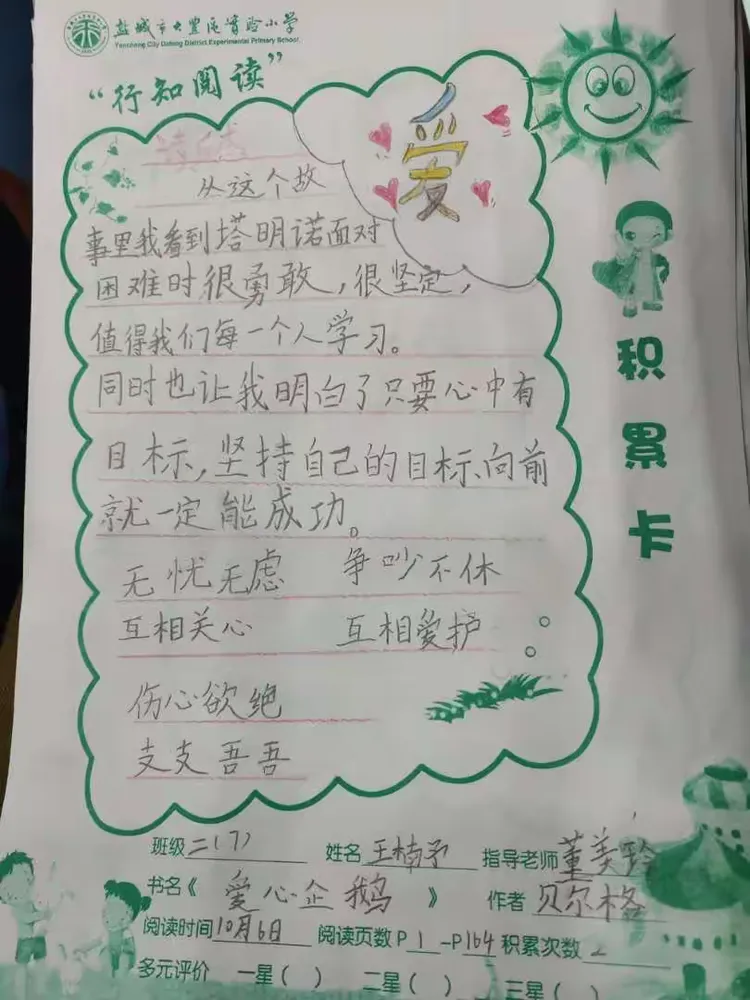 盐城市大丰区实验小学
Yancheng City Dafeng District Experimental Primary School
“行知阅读”
爱
读后感
从这个故
事里我看到塔明诺面对
困难时很勇敢，很坚定，
值得我们每一个人学习。
同时也让我明白了只要心中有
目标，坚持自己的目标、向前
就一定能成功。
无忧无虑 争吵不休
互相关心 互相爱护
伤心欲绝
支支吾吾
积累卡
班级 二（7） 姓名 王楠予 指导老师 董美玲
书名《 爱心企鹅 》 作者 贝尔格
阅读时间 10月6日 阅读页数P 1 -P 164 积累次数 2
多元评价 一星（ ） 二星（ ） 三星（ ）